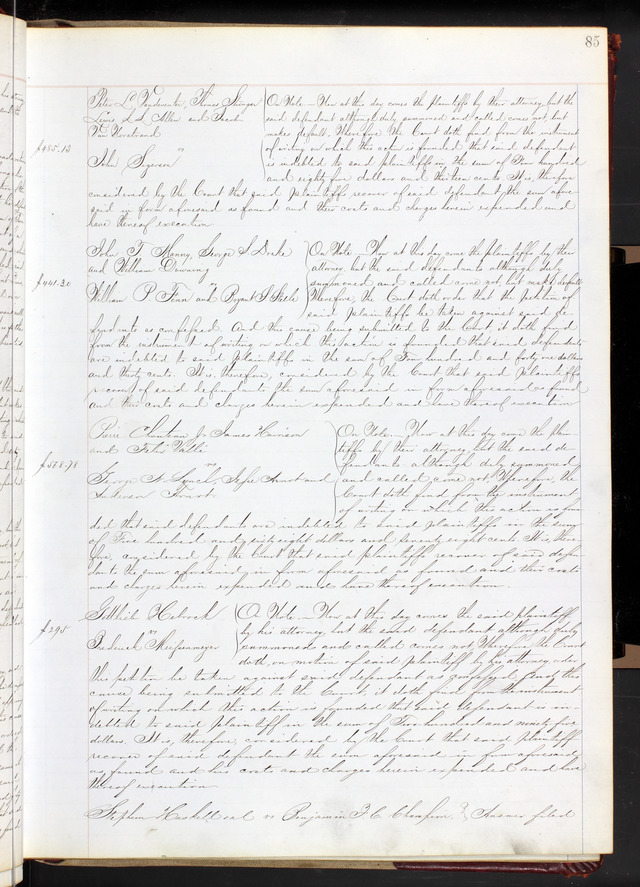 85
On Note - Now at this day comes the plaintiffs by their attorney, but the
Lewis L. Allen and
said defendant although duly summoned and called comes not, but
makes default. Therefore the Court doth find from the instrument
$485.13
of writing on which this action is founded that said defendant
John
is indebted to said plaintiffs in the sum of Four hundred
and eighty five dollars and thirteen cents. It is, therefore
considered by the Court that said plaintiffs recover of said defendant the sum afore-
said in form aforesaid as found and their costs and charges herein expended and
have thereof execution
John F. Manny, George S. Drake
On Note - Now at this day come the plaintiffs by their
and William Downing
attorney, but the said defendants although duly
$441.30
summoned and called come not, but make default
vs
William P. Finn and Bryant S. Steele
Therefore, the Court doth order that the petition of
said plaintiffs be taken against said de-
fendants as confessed. And the cause being submitted to the Court it doth find
from the instrument of writing on which this action is founded that said defendants
are indebted to said plaintiffs in the sum of Four hundred and forty one dollars
and thirty cents. It is, therefore, considered by the Court that said plaintiffs
recover of said defendants the sum aforesaid in form aforesaid as found
and their costs and charges herein expended and have thereof execution
Pierre Chouteau Jr James Harrison
On Note - Now at this day come the plain-
and Felix Vallé
tiffs by their attorney, but the said de-
$568.78
vs
fendants although duly summoned
George N. Lynch, and
and called come not. Therefore, the
Court doth find from the instrument
of writing on which the action is foun-
ded that said defendants are indebted to said plaintiffs in the sum
of Five hundred and sixty eight dollars and seventy eight cents. It is there-
fore, considered by the Court that said plaintiffs recover of said defen-
dants the sum aforesaid in form aforesaid as found and their costs
and charges herein expended and have thereof execution.
Gottlieb
On Note - Now at this day comes the said plaintiff
$295
vs
by his attorney, but the said defendant although duly
Frederick
summoned and called comes not. Therefore, the Court
doth, on motion of said plaintiff by his attorney, order
the petition be taken against said defendant as confessed. And this
cause being submitted to the Court, it doth find from the instrument
of writing on which this action is founded that said defendant is in-
debted to said plaintiff in the sum of Two hundred and ninety five
dollars. It is, therefore, considered by the Court that said plaintiff
recover of said defendant the sum aforesaid in form aforesaid
as found and his costs and charges herein expended and have
thereof execution.
Stephen Haskell et al vs Benjamin F. C. Answer filed